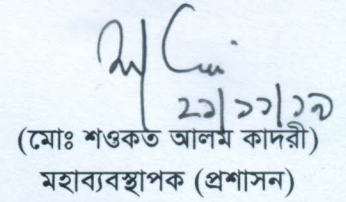 ২১/১১/১৯
(মোঃ শওকত আলম কাদরী)
মহাব্যবস্থাপক (প্রশাসন)